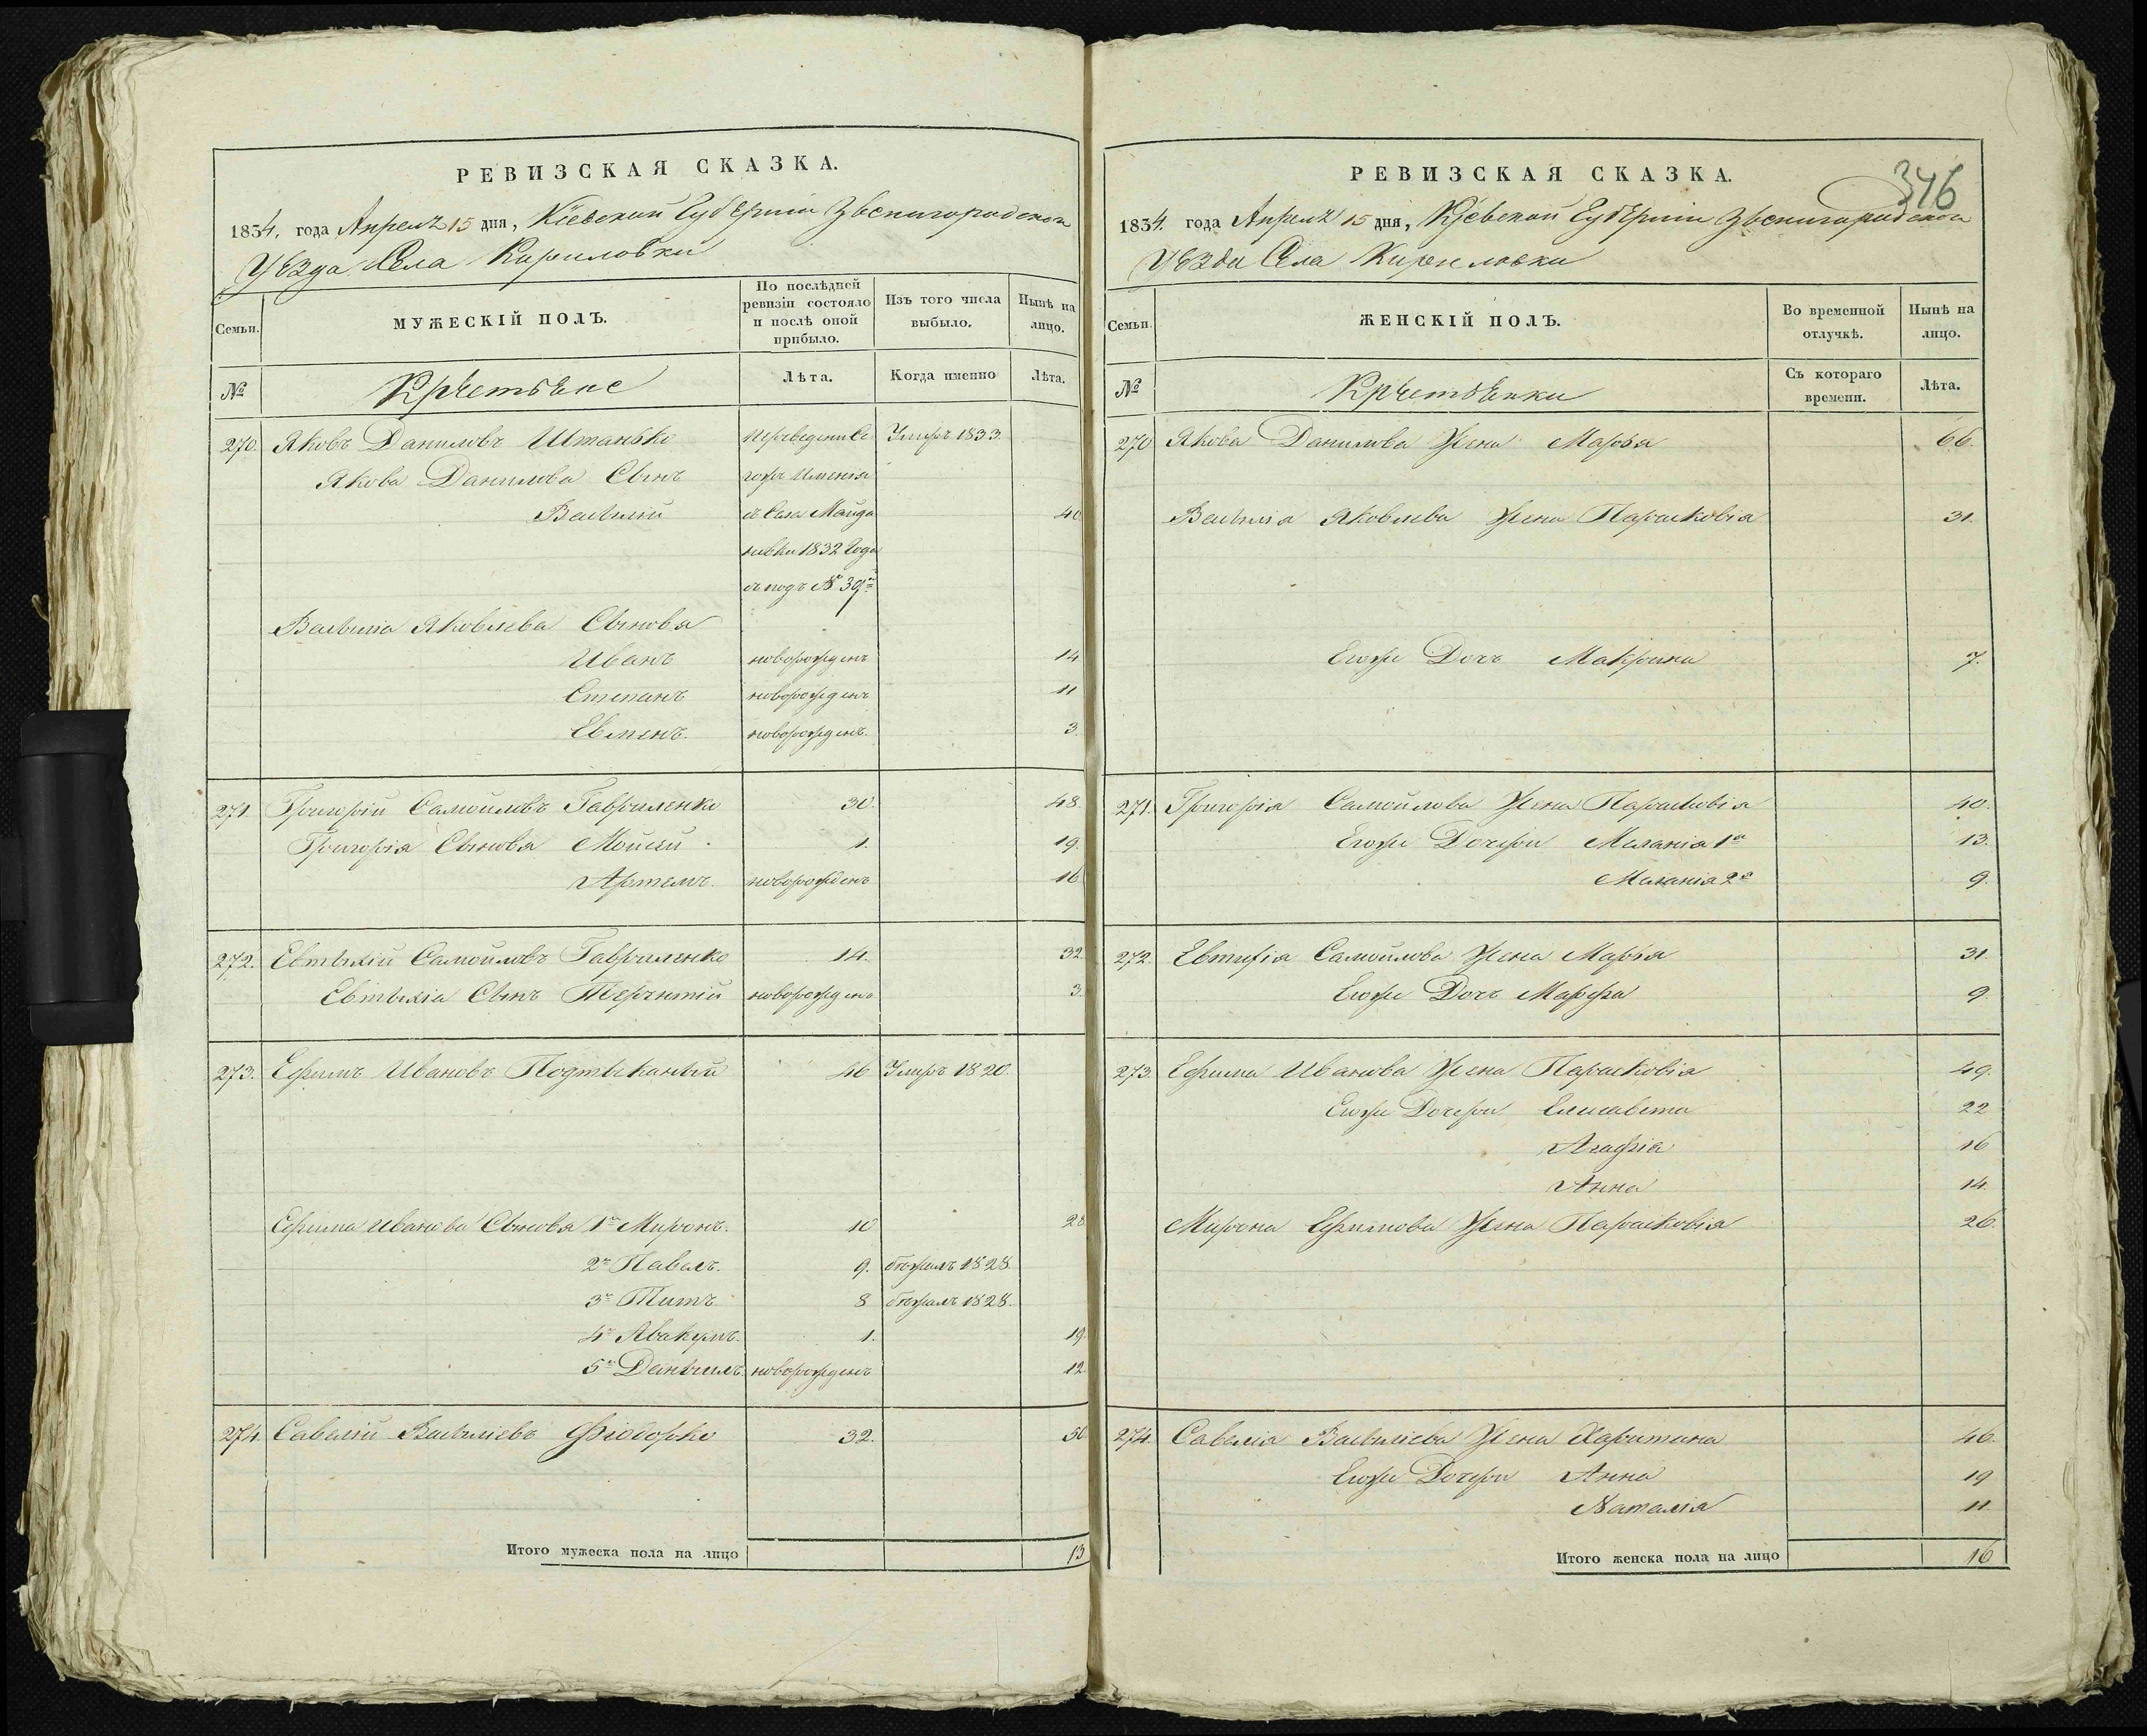 РЕВИЗСКАЯ СКАЗКА.
1834. года Апреля 15 дня, Кіевской Губерніи Звенигородскаго
Уѣзда Села Кириловки
Семьи.
МУЖЕСКІЙ ПОЛЪ.
По послѣдней ревизіи состояло и послѣ оной прибыло.
Изъ того числа выбыло.
Нынѣ на лицо.
№
Крестьяне
Лѣта.
Когда именно
Лѣта.
270. Яковъ Даниловъ Штанько Переведен Умеръ 1833.
Якова Данилова Сынъ гожъ Именія
Василій съ Села Майда 40
новки 1832 Года
съ подъ № 39го
Василія Яковлева Сыновя
Иванъ новорожденъ 14
Степанъ новорожденъ 11
Евменъ. новорожденъ. 3.
271. Григорій Самойловъ Гавриленко 30. 48.
Григорія Сыновя Мойсей 1. 19.
Артемъ. новорожденъ 16
272. Евтихій Самойловъ Гавриленко 14. 32
Евтихія Сынъ Терентій новорожденъ 3.
273. Ефимъ Ивановъ Подтыканый 46 Умеръ 1820.
Ефима Иванова Сыновя 1й Миронъ. 10 28
2й Павелъ. 9. бѣжалъ 1828.
3й Титъ 8 бѣжалъ 1828.
4й Авакумъ. 1. 19.
5й Даніилъ. новорожденъ 12.
274. Савелій Василіевъ Фіодорко 32. 50
Итого мужеска пола на лицо 13
РЕВИЗСКАЯ СКАЗКА.
346
1834. года Апреля 15 дня, Кіевской Губерніи Звенигородскаго
Уѣзда Села Кириловки
Семьи.
ЖЕНСКІЙ ПОЛЪ.
Во временной отлучкѣ.
Нынѣ на лицо.
№
Крестьянки
Съ котораго времени.
Лѣта.
270 Якова Данилова Жена Марья 66.
Василія Яковлева Жена Парасковія 31.
Егоже Дочъ Макрина 7.
271. Григорія Самойлова Жена Парасковія 40.
Егоже Дочери Меланія 1я 13.
Меланія 2я 9.
272. Евтихія Самойлова Жена Марія 31
Егоже Дочъ Марфа 9.
273. Ефима Иванова Жена Парасковія 49.
Егоже Дочери Елисавета 22
Агафія 16
Анна 14.
Мирона Ефимова Жена Парасковія 26.
274. Савелія Василіева Жена Харитина 46.
Егоже Дочери Анна 19
Наталія 11.
Итого женска пола на лицо 16